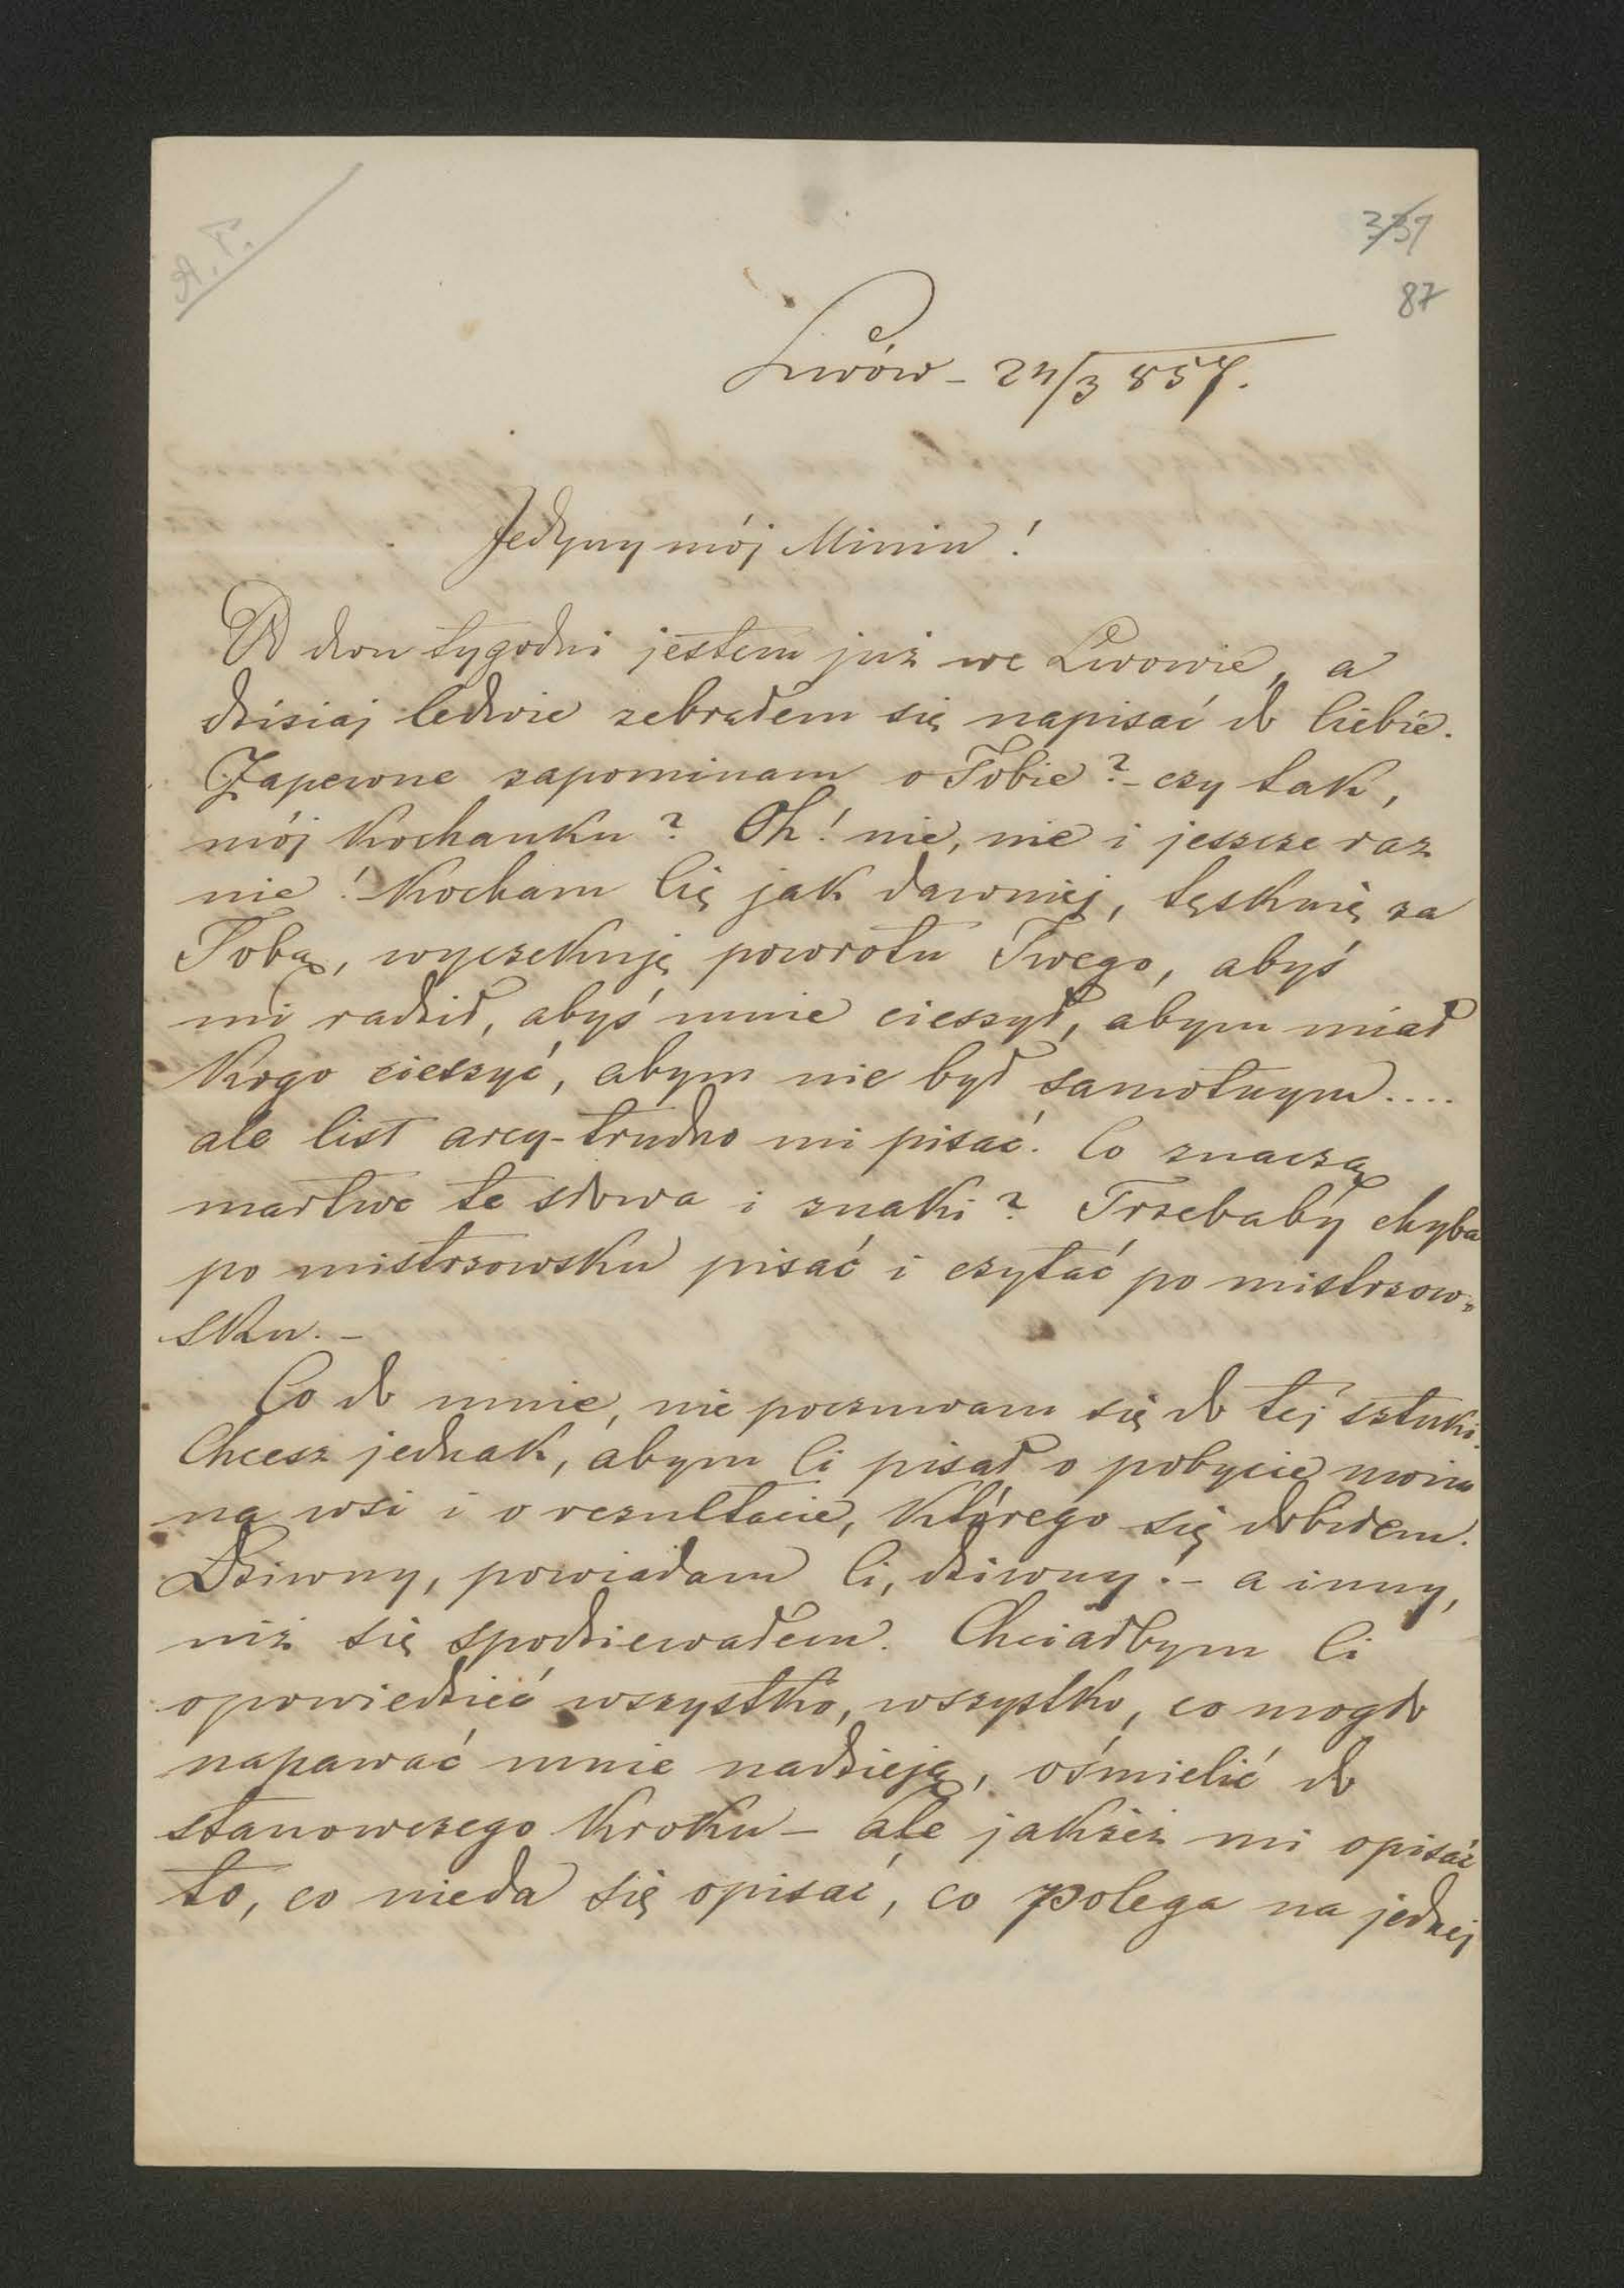 A.P.
331
87
Lwów - 24/3 857.
Jedyny mój Miniu!
Od dwu tygodni jestem już we Lwowie, a
dzisiaj ledwie zebrałem się napisać do Ciebie.
Zapewne zapominam o Tobie? - czy tak,
mój kochanku? Oh! nie, nie i jeszcze raz
nie! Kocham Cię jak dawniej, tęsknię za
Tobą, wyczekuję powrotu Twego, abyś
mi radził, abyś mnie cieszył, abym miał
kogo cieszyć, abym nie był samotnym....
ale list arcy-trudno mi pisać. Co znaczą
martwe te słowa i znaki? Trzebaby chyba
po mistrzowsku pisać i czytać po mistrzow=
sku. -
Co do mnie, nie poczuwam się do tej sztuki.
Chcesz jednak, abym Ci pisał o pobycie moim
na wsi i o rezultacie, którego się dobiłem.
Dziwny, powiadam Ci, dziwny! - a inny,
niż się spodziewałem. Chciałbym Ci
opowiedzieć wszystko, wszystko, co mogło
napawać mnie nadzieją, ośmielić do
stanowczego kroku - ale jakżeż mi opisać
to, co nieda się opisać, co polega na jednej